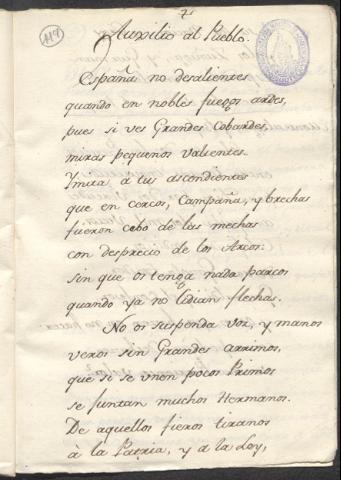 119
Auxilio al Pueblo.
España no desalientes
quando en nobles fuegos ardes,
pues si ves Grandes cobardes,
miras pequenos valientes.
Ymita à tus ascendientes
que en cercos, Campaña, y brechas
fueron cebo de las mechas
con desprecio de los Arcos:
sin que os tenga nada parcos
quando ya no lidian flechas.
No os suspenda voz, y manos
veros sin Grandes arrimos,
que si se vnen pocos Primos
se juntan muchos Hermanos.
De aquellos fieros tiranos
à la Patria, y a la Ley,